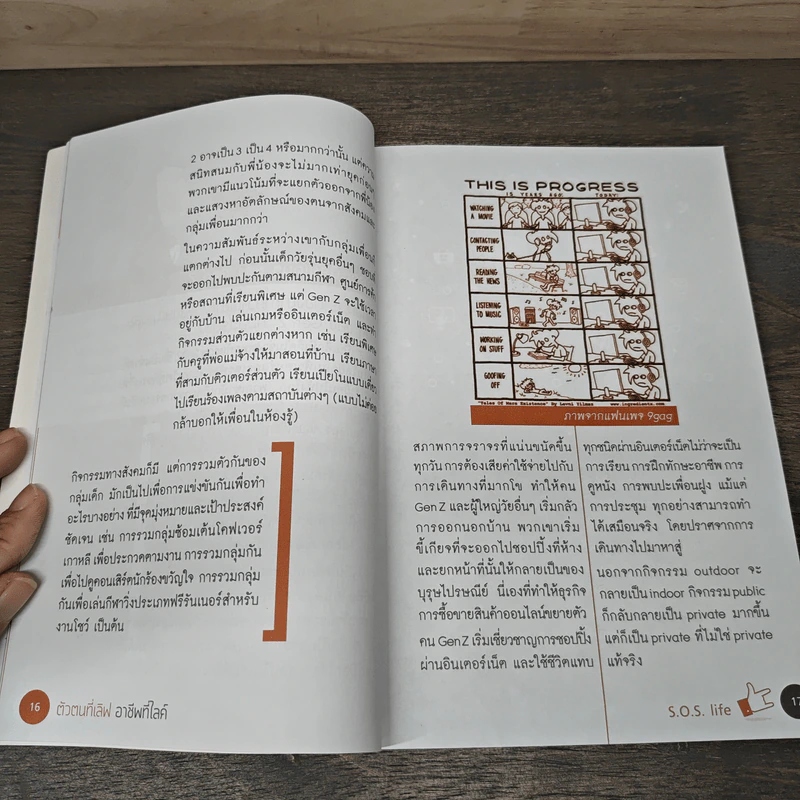 2 อาจเป็น 3 เป็น 4 หรือมากกว่านั้น แต่ความ
สนิทสนมกับพี่น้องจะไม่มากเท่ายุคก่อน
พวกเขามีแนวโน้มที่จะแยกตัวออกจากพี่น้อง
และแสวงหาอัตลักษณ์ของตนจากสังคมและ
กลุ่มเพื่อนมากกว่า
ในความสัมพันธ์ระหว่างเขากับกลุ่มเพื่อนก็
แตกต่างไป ก่อนนั้นเด็กวัยรุ่นยุคอื่นๆ ชอบที่
จะออกไปพบปะกันตามสนามกีฬา ศูนย์การค้า
หรือสถานที่เรียนพิเศษ แต่ Gen Z จะใช้เวลา
อยู่กับบ้าน เล่นเกมหรืออินเตอร์เน็ต และทำ
กิจกรรมส่วนตัวแยกต่างหาก เช่น เรียนพิเศษ
กับครูที่พ่อแม่จ้างให้มาสอนที่บ้าน เรียนภาษา
ที่สามกับติวเตอร์ส่วนตัว เรียนเปียโนแบบเดี่ยว
ไปเรียนร้องเพลงตามสถาบันต่างๆ (แบบไม่ค่อย
กล้าบอกให้เพื่อนในห้องรู้)
กิจกรรมทางสังคมก็มี แต่การรวมตัวกันของ
กลุ่มเด็ก มักเป็นไปเพื่อการแข่งขันกันเพื่อทำ
อะไรบางอย่าง ที่มีจุดมุ่งหมายและเป้าประสงค์
ชัดเจน เช่น การรวมกลุ่มซ้อมเต้นโคฟเวอร์
เกาหลี เพื่อประกวดตามงาน การรวมกลุ่มกัน
เพื่อไปดูคอนเสิร์ตนักร้องขวัญใจ การรวมกลุ่ม
กันเพื่อเล่นกีฬาวิ่งประเภทฟรีรันเนอร์สำหรับ
งานโชว์ เป็นต้น
16 ตัวตนที่เลิฟ อาชีพที่ไลค์
THIS IS PROGRESS
15 YEARS AGO TODAY
WATCHING
A MOVIE
CONTACTING
PEOPLE
READING
THE NEWS
LISTENING
TO MUSIC
WORKING
ON STUFF
GOOFING
OFF
"Tales Of Mere Existence" By Levni Yilmaz www.ingredientx.com
ภาพจากแฟนเพจ 9gag
สภาพการจราจรที่แน่นขนัดขึ้น
ทุกวัน การต้องเสียค่าใช้จ่ายไปกับ
การเดินทางที่มากโข ทำให้คน
Gen Z และผู้ใหญ่วัยอื่นๆ เริ่มกลัว
การออกนอกบ้าน พวกเขาเริ่ม
ขี้เกียจที่จะออกไปชอปปิ้งที่ห้าง
และยกหน้าที่นั้นให้กลายเป็นของ
บุรุษไปรษณีย์ นี่เองที่ทำให้ธุรกิจ
การซื้อขายสินค้าออนไลน์ขยายตัว
คน Gen Z เริ่มเชี่ยวชาญการชอปปิ้ง
ผ่านอินเตอร์เน็ต และใช้ชีวิตแทบ
ทุกชนิดผ่านอินเตอร์เน็ตไม่ว่าจะเป็น
การเรียน การฝึกทักษะอาชีพ การ
ดูหนัง การพบปะเพื่อนฝูง แม้แต่
การประชุม ทุกอย่างสามารถทำ
ได้เสมือนจริง โดยปราศจากการ
เดินทางไปมาหาสู่
นอกจากกิจกรรม outdoor จะ
กลายเป็น indoor กิจกรรม public
ก็กลับกลายเป็น private มากขึ้น
แต่ก็เป็น private ที่ไม่ใช่ private
แท้จริง
S.O.S. life 17